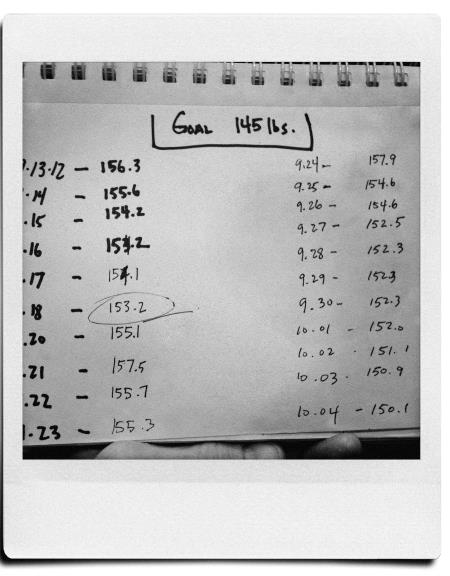 GOAL 145 lbs.
.13.12 - 156.3
.14 - 155.6
.15 - 154.2
.16 - 154.2
.17 - 154.1
.18 - 153.2
.20 - 155.1
.21 - 157.5
.22 - 155.7
.23 - 155.3
9.24 - 157.9
9.25 - 154.6
9.26 - 154.6
9.27 - 152.5
9.28 - 152.3
9.29 - 152.3
9.30 - 152.3
10.01 - 152.0
10.02 - 151.1
10.03 - 150.9
10.04 - 150.1